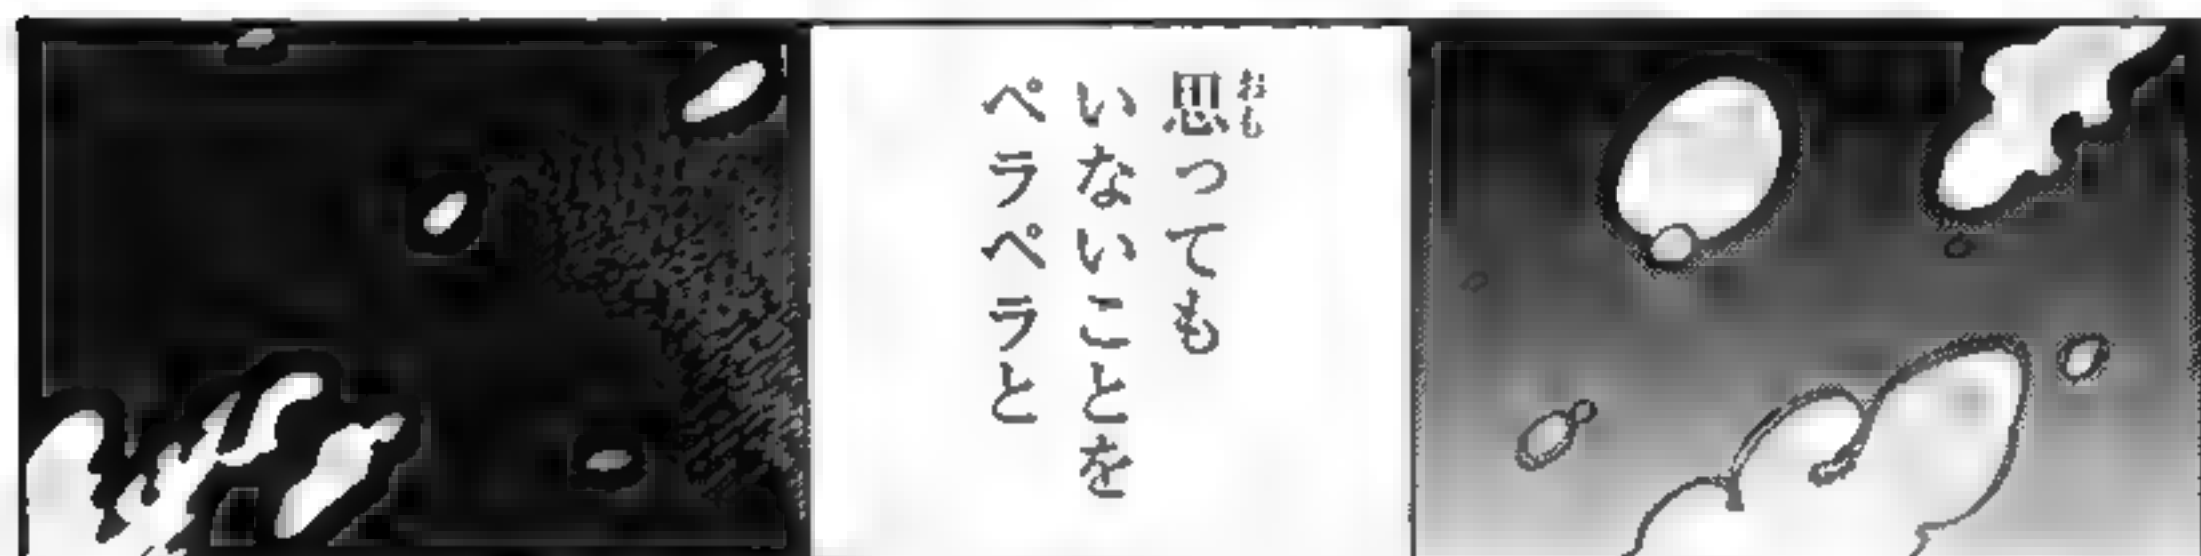 思っても
いないことを
ペラペラと